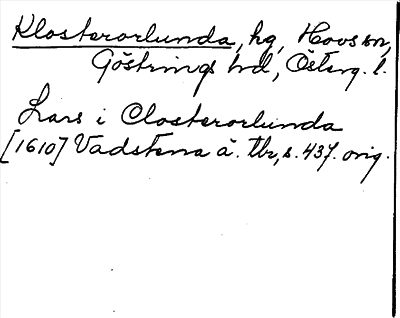 Klosterorlunda, hg, Hovs sn,
Göstrings hd, Österg. l.
Lars i Closterorlunda
[1610] Vadstena ä. tbr, s. 437. orig.